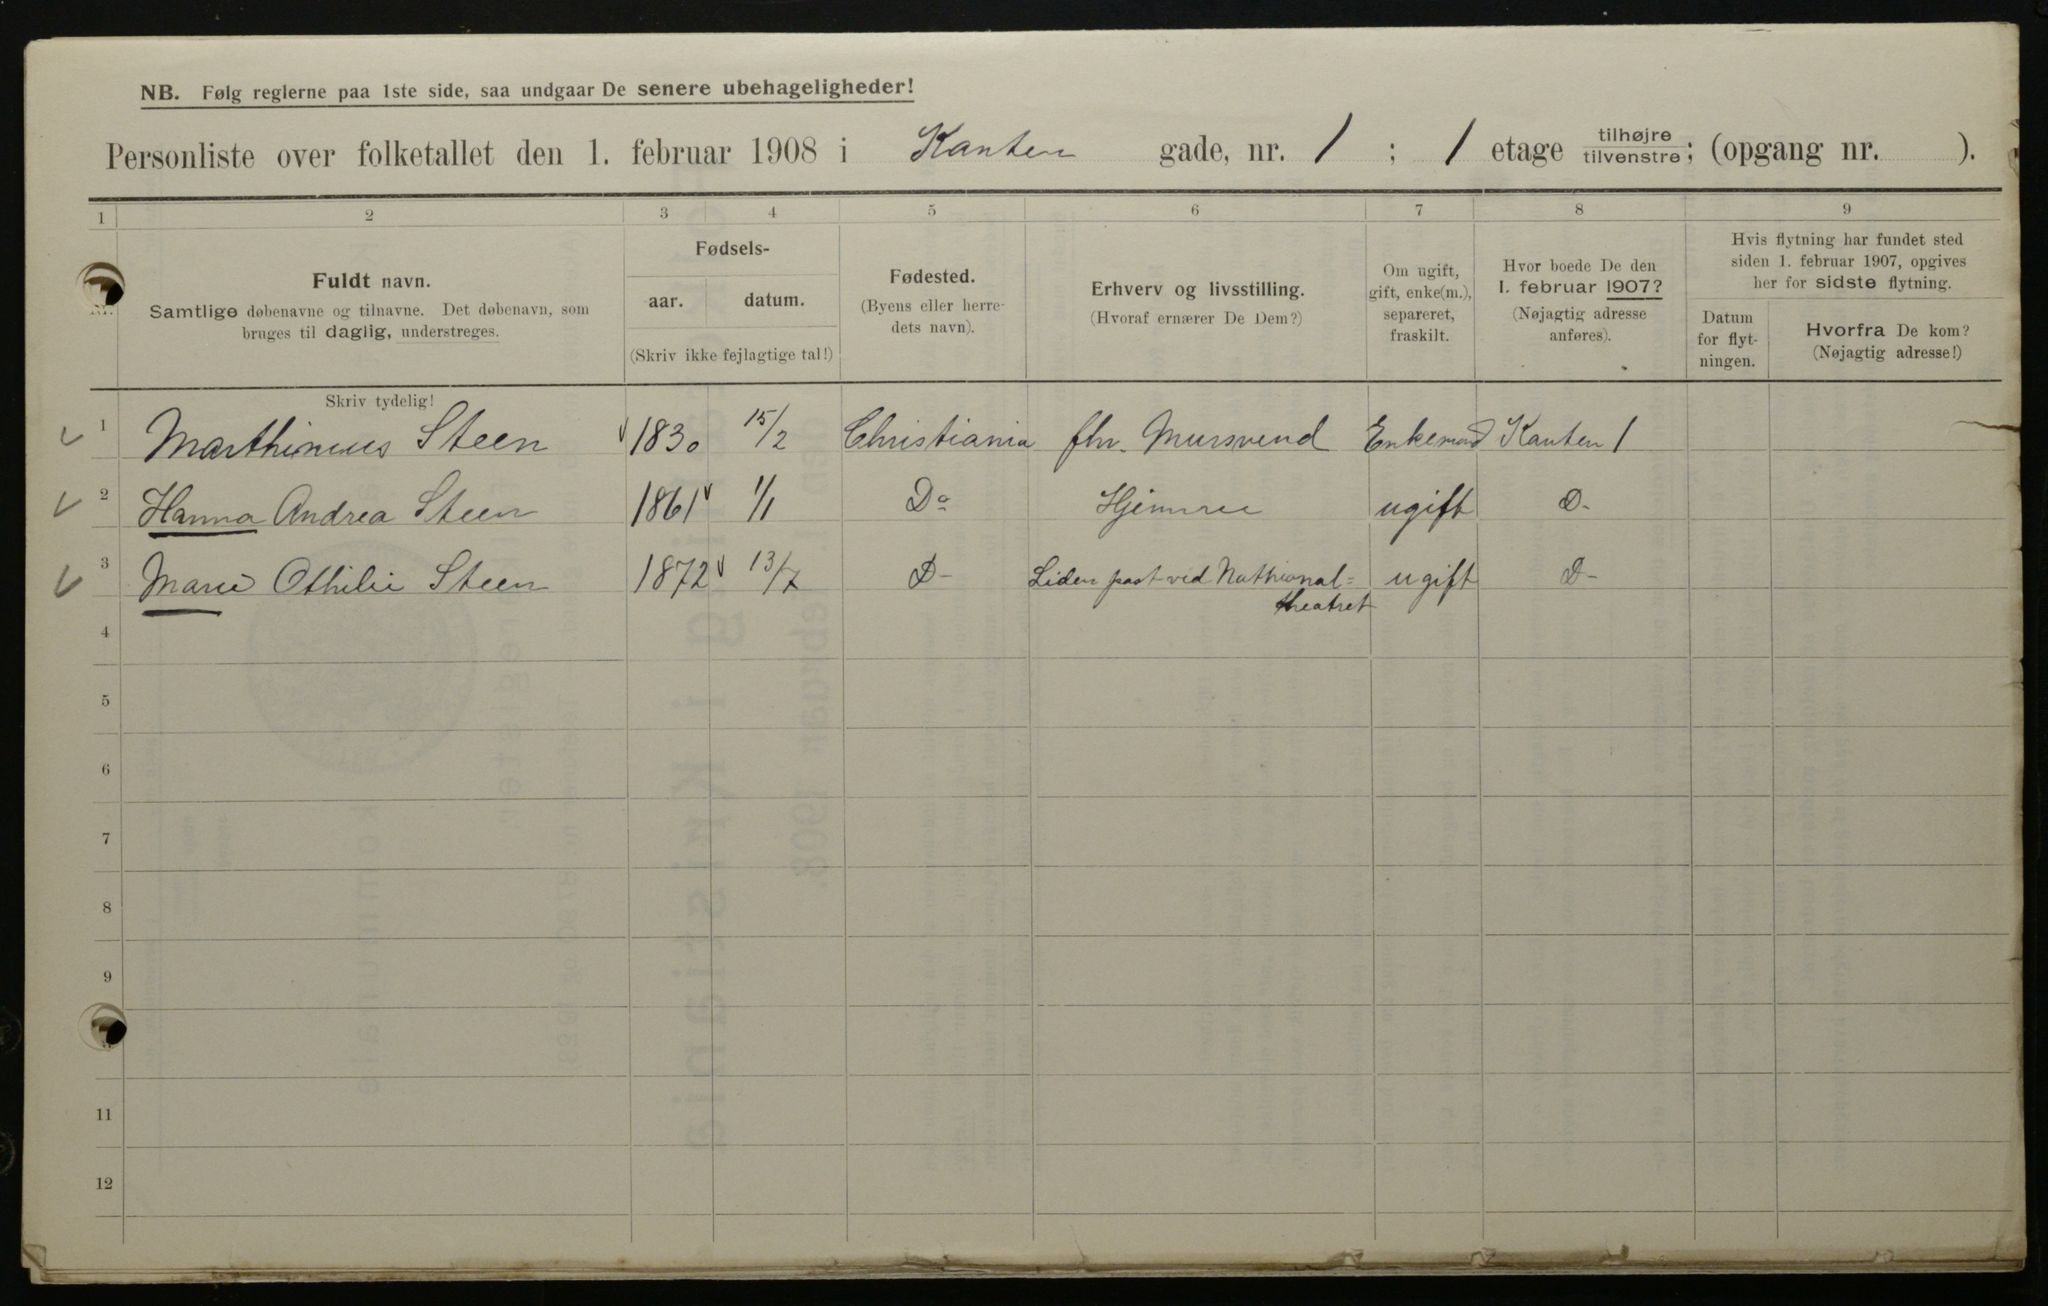 NB. Følg reglerne paa 1ste side, saa undgaar De senere ubehageligheder!
Personliste over folketallet den 1. februar 1908 i Kanten gade, nr. 1 ; 1 etage tilhøjre tilvenstre; (opgang nr. ).
1 2 3 4 5 6 7 8 9
Fuldt navn.
Samtlige døbenavne og tilnavne. Det døbenavn, som
bruges til daglig, understreges.
Skriv tydelig!
Fødsels-
aar. datum.
(Skriv ikke fejlagtige tal!)
Fødested.
(Byens eller herre-
dets navn).
Erhverv og livsstilling.
(Hvoraf ernærer De Dem?)
Om ugift,
gift, enke(m.),
separeret,
fraskilt.
Hvor boede De den
1. februar 1907?
(Nøjagtig adresse
anføres).
Hvis flytning har fundet sted
siden 1. februar 1907, opgives
her for sidste flytning.
Datum
for flyt-
ningen.
Hvorfra De kom?
(Nøjagtig adresse!)
1 Marthinius Steen 1830 15/2 Christiania fhv. Mursvend Enkemand Kanten 1
2 Hanna Andrea Steen 1861 1/1 Do Hjemme ugift D-
3 Marie Othilie Steen 1872 13/7 D- Liden post vid Nathional=
theatret ugift D-
4
5
6
7
8
9
11
12